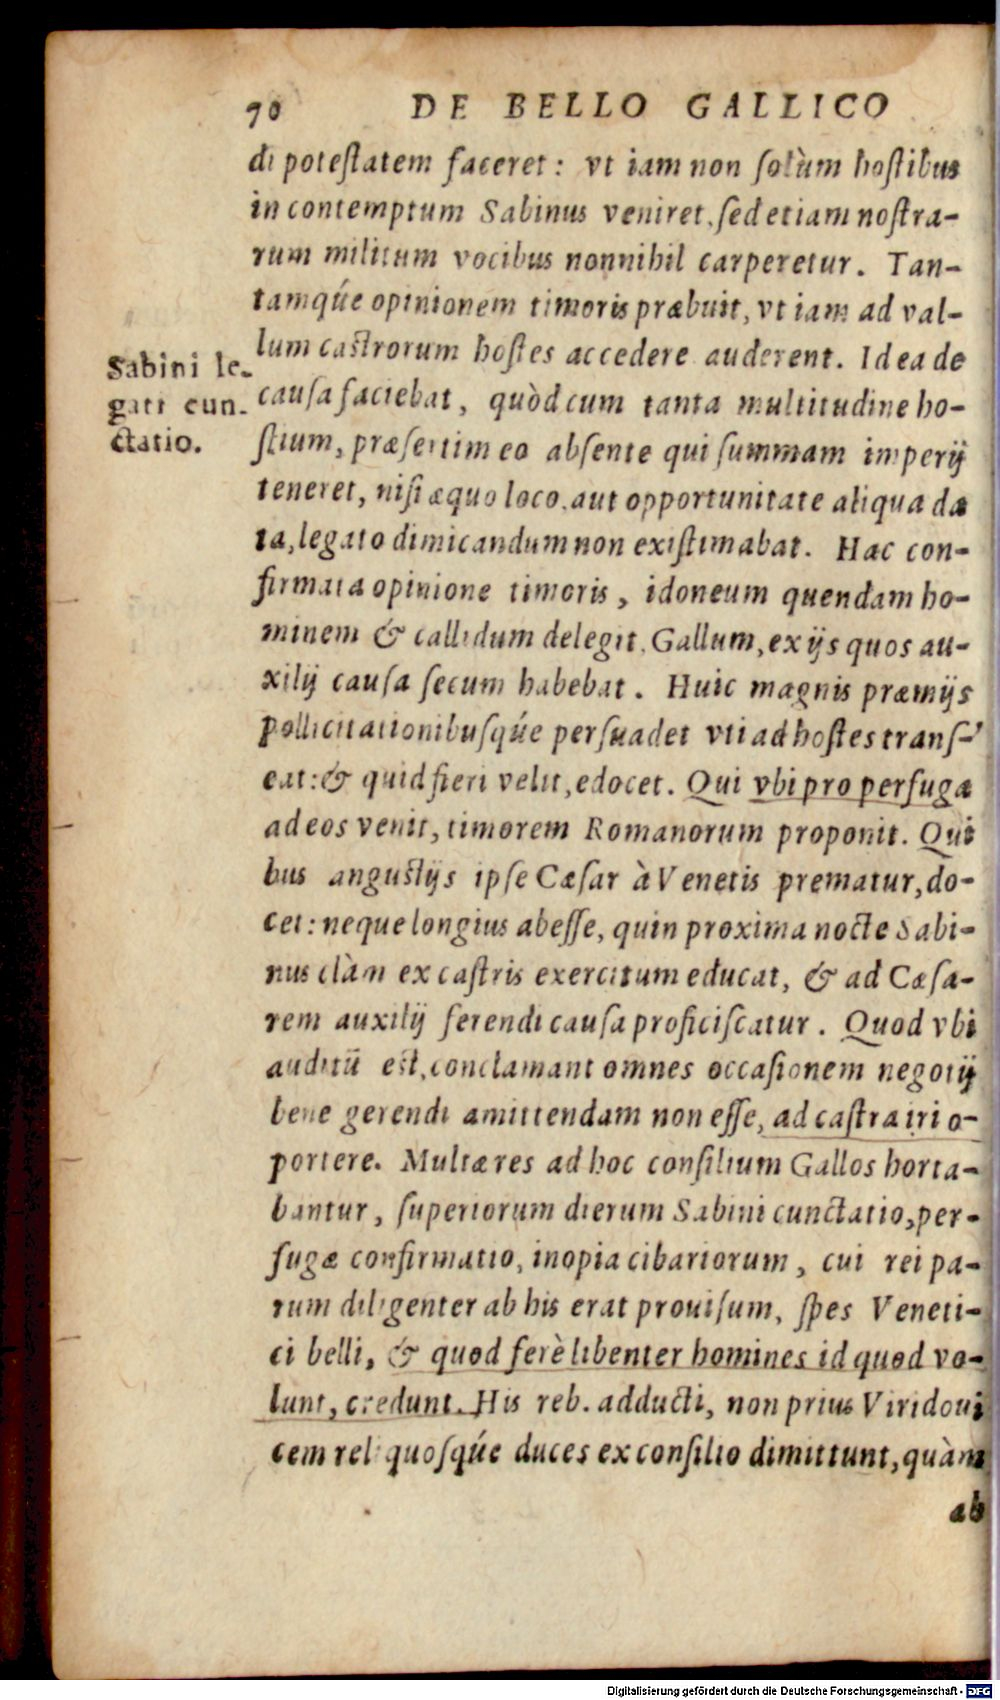 70 DE BELLO GALLICO
di poteſtatem faceret: vt iam non ſolùm hoſtibus
in contemptum Sabinus veniret, ſed etiam noſtra-
rum militum vocibus nonnihil carperetur. Tan-
tamq́ue opinionem timoris præbuit, vt iam ad val-
lum caſtrorum hoſtes accedere auderent. Id ea de
Sabini le-
gati cun-
ctatio.
cauſa faciebat, quòd cum tanta multitudine ho-
ſtium, præſertim eo abſente qui ſummam imperij
teneret, niſi æquo loco, aut opportunitate aliqua da
ta, legato dimicandum non exiſtimabat. Hac con-
firmata opinione timoris, idoneum quendam ho-
minem & callidum delegit, Gallum, ex ijs quos au-
xilij cauſa ſecum habebat. Huic magnis præmijs
pollicitationibuſq́ue perſuadet vti ad hoſtes tranſ-
eat: & quid fieri velit, edocet. Qui vbi pro perfuga
ad eos venit, timorem Romanorum proponit. Qui
bus anguſtijs ipſe Cæſar à Venetis prematur, do-
cet: neque longius abeſſe, quin proxima nocte Sabi-
nus clàm ex caſtris exercitum educat, & ad Cæſa-
rem auxilij ferendi cauſa proficiſcatur. Quod vbi
auditū eſt, conclamant omnes occaſionem negotij
bene gerendi amittendam non eſſe, ad caſtra iri o-
portere. Multæ res ad hoc conſilium Gallos horta-
bantur, ſuperiorum dierum Sabini cunctatio, per-
fugæ confirmatio, inopia cibariorum, cui rei pa-
rum diligenter ab his erat prouiſum, ſpes Veneti-
ci belli, & quod ferè libenter homines id quod vo-
lunt, credunt. His reb. adducti, non prius Viridoui
cem reliquoſq́ue duces ex conſilio dimittunt, quàm
ab
Digitalisierung gefördert durch die Deutsche Forschungsgemeinschaft - DFG